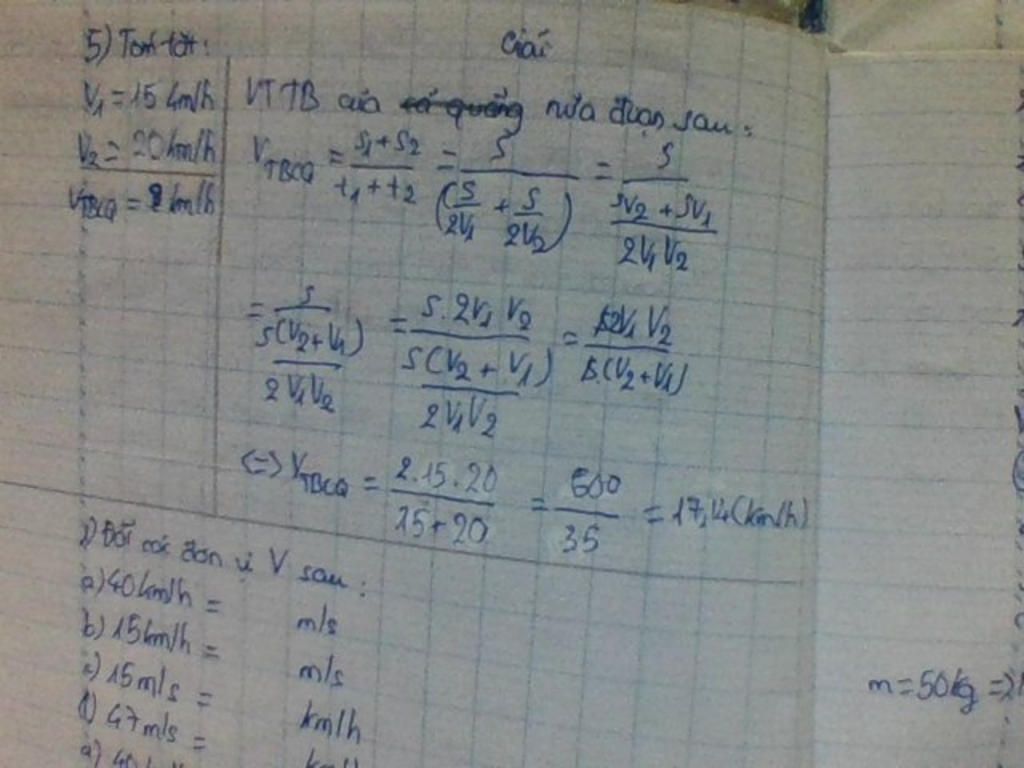 5) Tóm tắt:
Giải
V1 = 15 km/h
V2 = 20 km/h
VTBCQ = ? km/h
VTTB của nửa đoạn sau:
VTBCQ = (S1 + S2)/(t1 + t2) = S/(S/2V1 + S/2V2) = S/((SV2 + SV1)/(2V1V2))
= S/(S(V2+V1)/(2V1V2)) = (S.2V1V2)/(S(V2 + V1)/(2V1V2)) = (S2V1V2)/(S.(V2+V1))
<=> VTBCQ = (2.15.20)/(15+20) = 600/35 = 17,14 (km/h)
1) Đổi các đơn vị V sau:
a) 40km/h = m/s
b) 15km/h = m/s
c) 15m/s = km/h
47m/s = km/h
m = 50kg =>